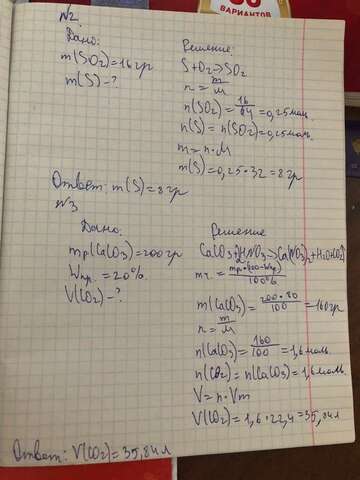 ВАРИАНТОВ
№2.
Дано:
m(SO₂)=16гр
m(S)-?
Решение:
S+O₂→SO₂
n = m/M
n(SO₂)=16/64=0,25моль.
n(S)=n(SO₂)=0,25моль.
m=n·M
m(S)=0,25·32=8гр
Ответ: m(S)=8гр
№3
Дано:
mр(CaCO₃)=200гр
Wпр.=20%
V(CO₂)-?
Решение
CaCO₃+2HNO₃→Ca(NO₃)₂+H₂O+CO₂↑
mч.= mр·(100-Wпр)/100%
m(CaCO₃)=200·80/100=160гр
n=m/M
n(CaCO₃)=160/100=1,6моль.
n(CO₂)=n(CaCO₃)=1,6моль.
V=n·Vm
V(CO₂)=1,6·22,4=35,84л
Ответ: V(CO₂)=35,84л